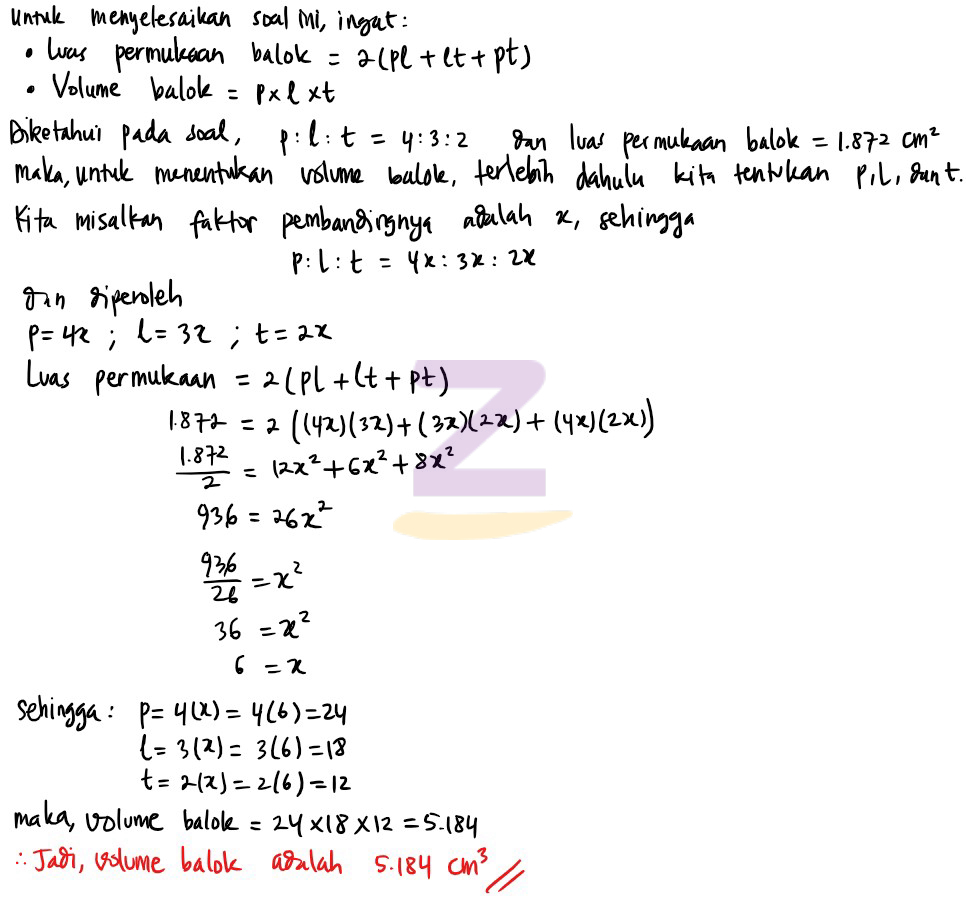 Untuk menyelesaikan soal ini, ingat:
• Luas permukaan balok = 2(pl + lt + pt)
• Volume balok = p x l x t
Diketahui pada soal, p : l : t = 4 : 3 : 2 dan luas permukaan balok = 1.872 cm²
maka, untuk menentukan volume balok, terlebih dahulu kita tentukan p, l, dan t.
Kita misalkan faktor pembandingnya adalah x, sehingga
p : l : t = 4x : 3x : 2x
dan diperoleh
p = 4x ; l = 3x ; t = 2x
Luas permukaan = 2(pl + lt + pt)
1.872 = 2((4x)(3x) + (3x)(2x) + (4x)(2x))
1.872/2 = 12x² + 6x² + 8x²
936 = 26x²
936/26 = x²
36 = x²
6 = x
Sehingga : p = 4(x) = 4(6) = 24
l = 3(x) = 3(6) = 18
t = 2(x) = 2(6) = 12
maka, volume balok = 24 x 18 x 12 = 5.184
∴ Jadi, volume balok adalah 5.184 cm³ //
Z